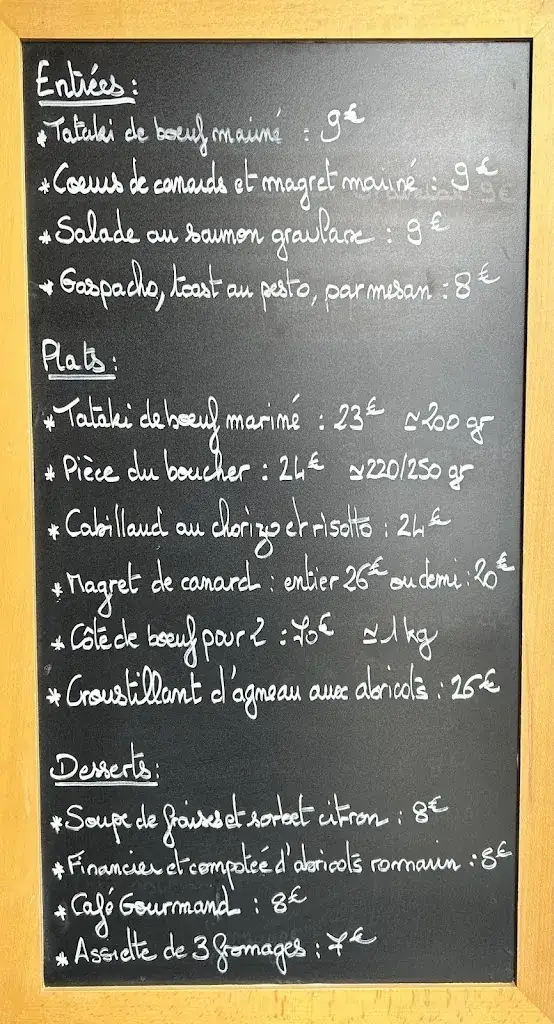 Entrées :
* Tataki de boeuf mariné : 9€
* Coeurs de canards et magret mariné : 9€
* Salade au saumon gravlax : 9€
* Gaspacho, toast au pesto, parmesan : 8€
Plats :
* Tataki de boeuf mariné : 23€ ≃200 gr
* Pièce du boucher : 24€ ≃220/250 gr
* Cabillaud au chorizo et risotto : 24€
* Magret de canard : entier 26€ ou demi : 20€
* Côte de boeuf pour 2 : 70€ ≃1kg
* Croustillant d'agneau aux abricots : 26€
Desserts :
* Soupe de fraises et sorbet citron : 8€
* Financier et compotée d'abricots romarin : 8€
* Café Gourmand : 8€
* Assiette de 3 fromages : 7€